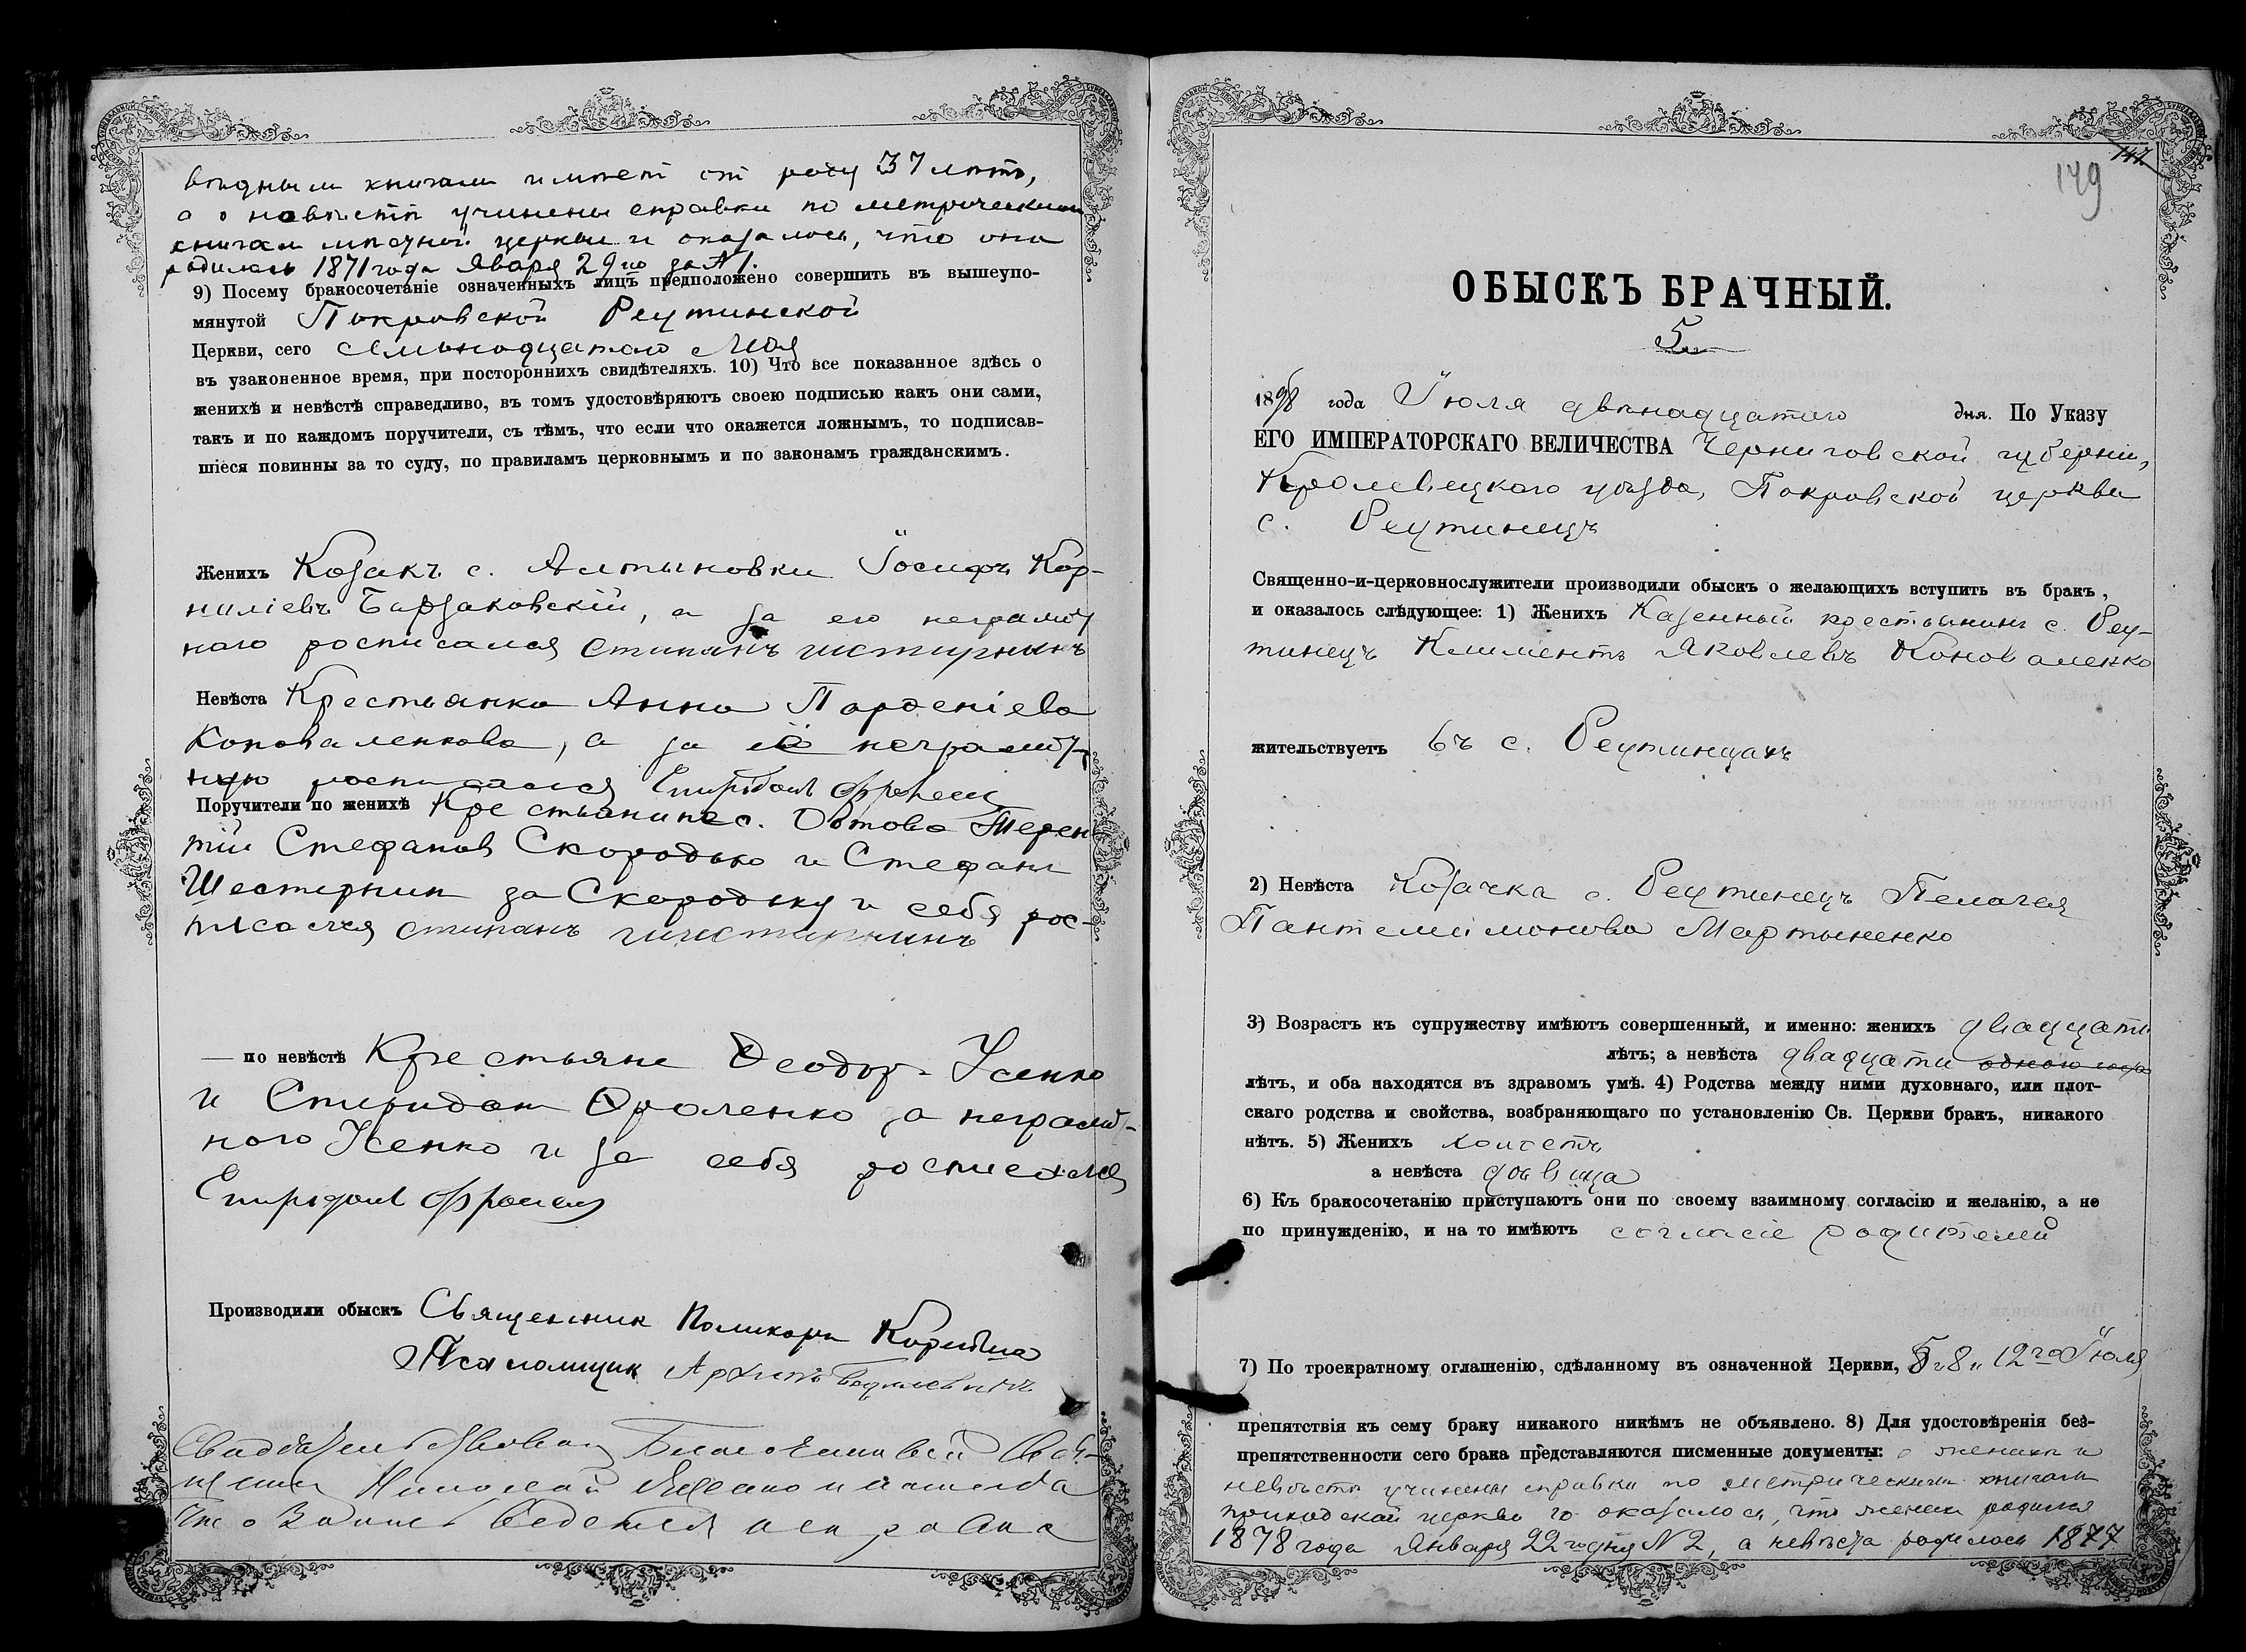 имеетъ отъ роду 37 летъ,
а о невестѣ учинены справки по метрическим
книгам местной церкви и оказалось, что она
родилась 1871 года Января 29го за №1.
9) Посему бракосочетаніе означенныхъ лицъ предположено совершить въ вышеупо-
мянутой Покровской Реутинской
Церкви, сего семьнадцатого Мая
въ узаконенное время, при постороннихъ свидѣтеляхъ. 10) Что все показанное здѣсь о
женихѣ и невѣстѣ справедливо, въ томъ удостовѣряютъ своею подписью какъ они сами,
такъ и по каждомъ поручители, съ тѣмъ, что если что окажется ложнымъ, то подписав-
шіеся повинны за то суду, по правиламъ церковнымъ и по законамъ гражданскимъ.
Женихъ Козакъ с. Алтыновки Іосифъ Кор-
ниліевъ Барзаковскій, а за его неграмот
ного росписался
Невѣста Крестьянка Анна Парѳеніева
Коноваленкова, а за её неграмот-
ную росписался
Поручители по женихѣ Крестьянинъ с. Обтова Терен
тій Стефановъ Скородько и Стефанъ
Шестернин за Скородьку и себя рос-
писался
— по невѣстѣ Крестьяне Ѳеодор Усенко
и Спиридон Ѳроленко за неграмот-
ного Усенко и за себя росписался
Производили обыскъ Священник Поликарп
Псаломщик
149
147
ОБЫСКЪ БРАЧНЫЙ.
5
1898 года Іюля двѣнадцатого дня. По Указу
ЕГО ИМПЕРАТОРСКАГО ВЕЛИЧЕСТВА Черниговской губерніи,
Кролевецкого уѣзда, Покровской церкви
с. Реутинецъ
Священно-и-церковнослужители производили обыскъ о желающихъ вступить въ бракъ,
и оказалось слѣдующее: 1) Женихъ Казенный крестьянинъ с. Реу-
тинецъ Климентъ Яковлевъ Коноваленко
жительствуетъ въ с. Реутинцахъ
2) Невѣста Козачка с. Реутинецъ Пелагея
Пантелеимонова Мартыненко
3) Возрастъ къ супружеству имѣютъ совершенный, и именно: женихъ двадцати
лѣтъ; а невѣста двадцати одного года
лѣтъ, и оба находятся въ здравомъ умѣ. 4) Родства между ними духовнаго, или плот-
скаго родства и свойства, возбраняющаго по установленію Св. Церкви бракъ, никакого
нѣтъ. 5) Женихъ холостъ
а невѣста дѣвица
6) Къ бракосочетанію приступаютъ они по своему взаимному согласію и желанію, а не
по принужденію, и на то имѣютъ согласіе родителей
7) По троекратному оглашенію, сдѣланному въ означенной Церкви, 5, 8, 12го Іюля
препятствія къ сему браку никакого никѣмъ не объявлено. 8) Для удостовѣренія без-
препятственности сего брака представляются писменные документы: о женихѣ и
невѣстѣ учинены справки по метрическим книгам
приходской церкви и оказалось, что женихъ родился
1878 года Января 22 го дня N 2, а невѣста родилась 1877